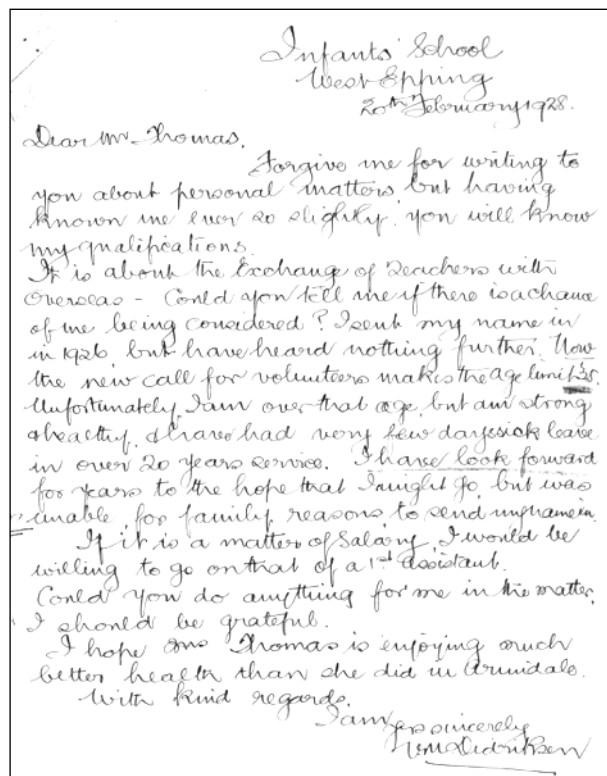 Infants' School
West Epping
20th February 1928.
Dear Mr Thomas,
Forgive me for writing to
you about personal matters but having
known me ever so slightly, you will know
my qualifications.
It is about the Exchange of Teachers with
Overseas - Could you tell me if there is a chance
of me being considered? I sent my name in
in 1926, but have heard nothing further. Now
the new call for volunteers makes the age limit 35.
Unfortunately, I am over that age, but am strong
& healthy, & have had very few days sick leave
in over 20 years service. I have look forward
for years to the hope that I might go, but was
unable, for family reasons to send my name in.
If it is a matter of Salary, I would be
willing to go on that of a 1st assistant.
Could you do anything for me in the matter,
I should be grateful.
I hope Mrs Thomas is enjoying much
better health than she did in Armidale.
With kind regards,
I am
yrs sincerely
Didriksen